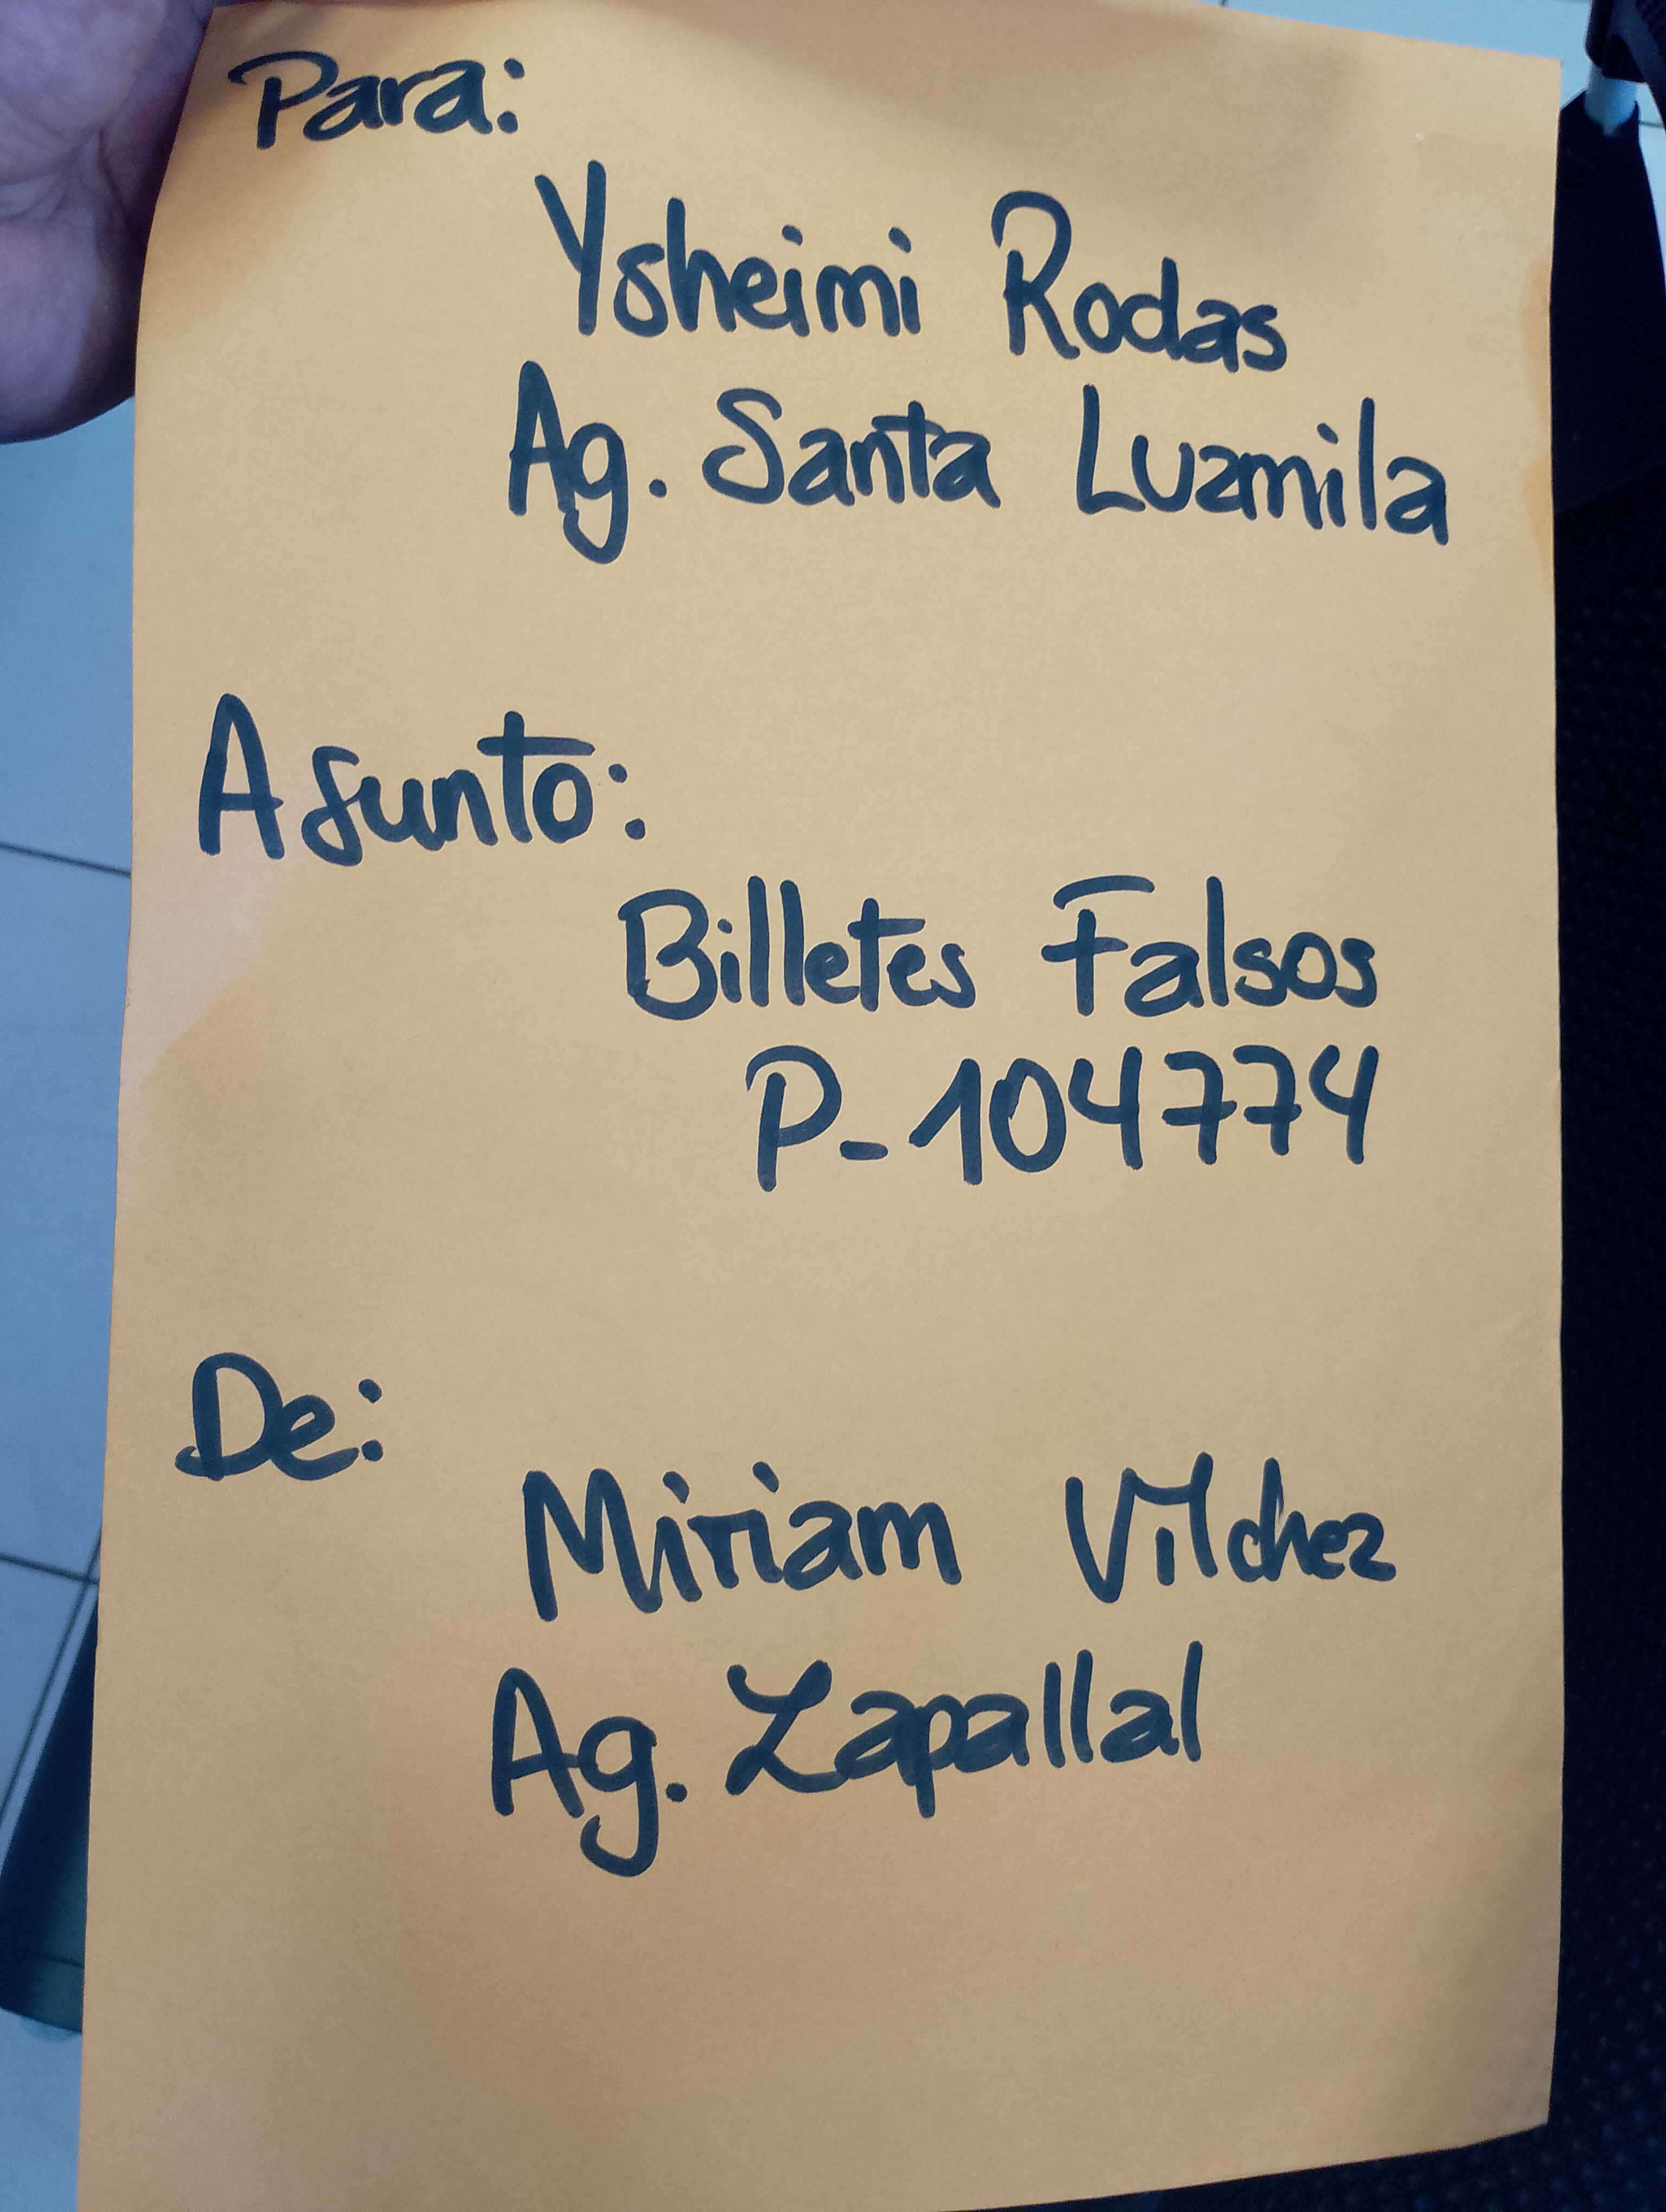 Para:
Ysheimi Rodas
Ag. Santa Luzmila
Asunto:
Billetes Falsos
P-104774
De:
Miriam Vilchez
Ag. Zapallal